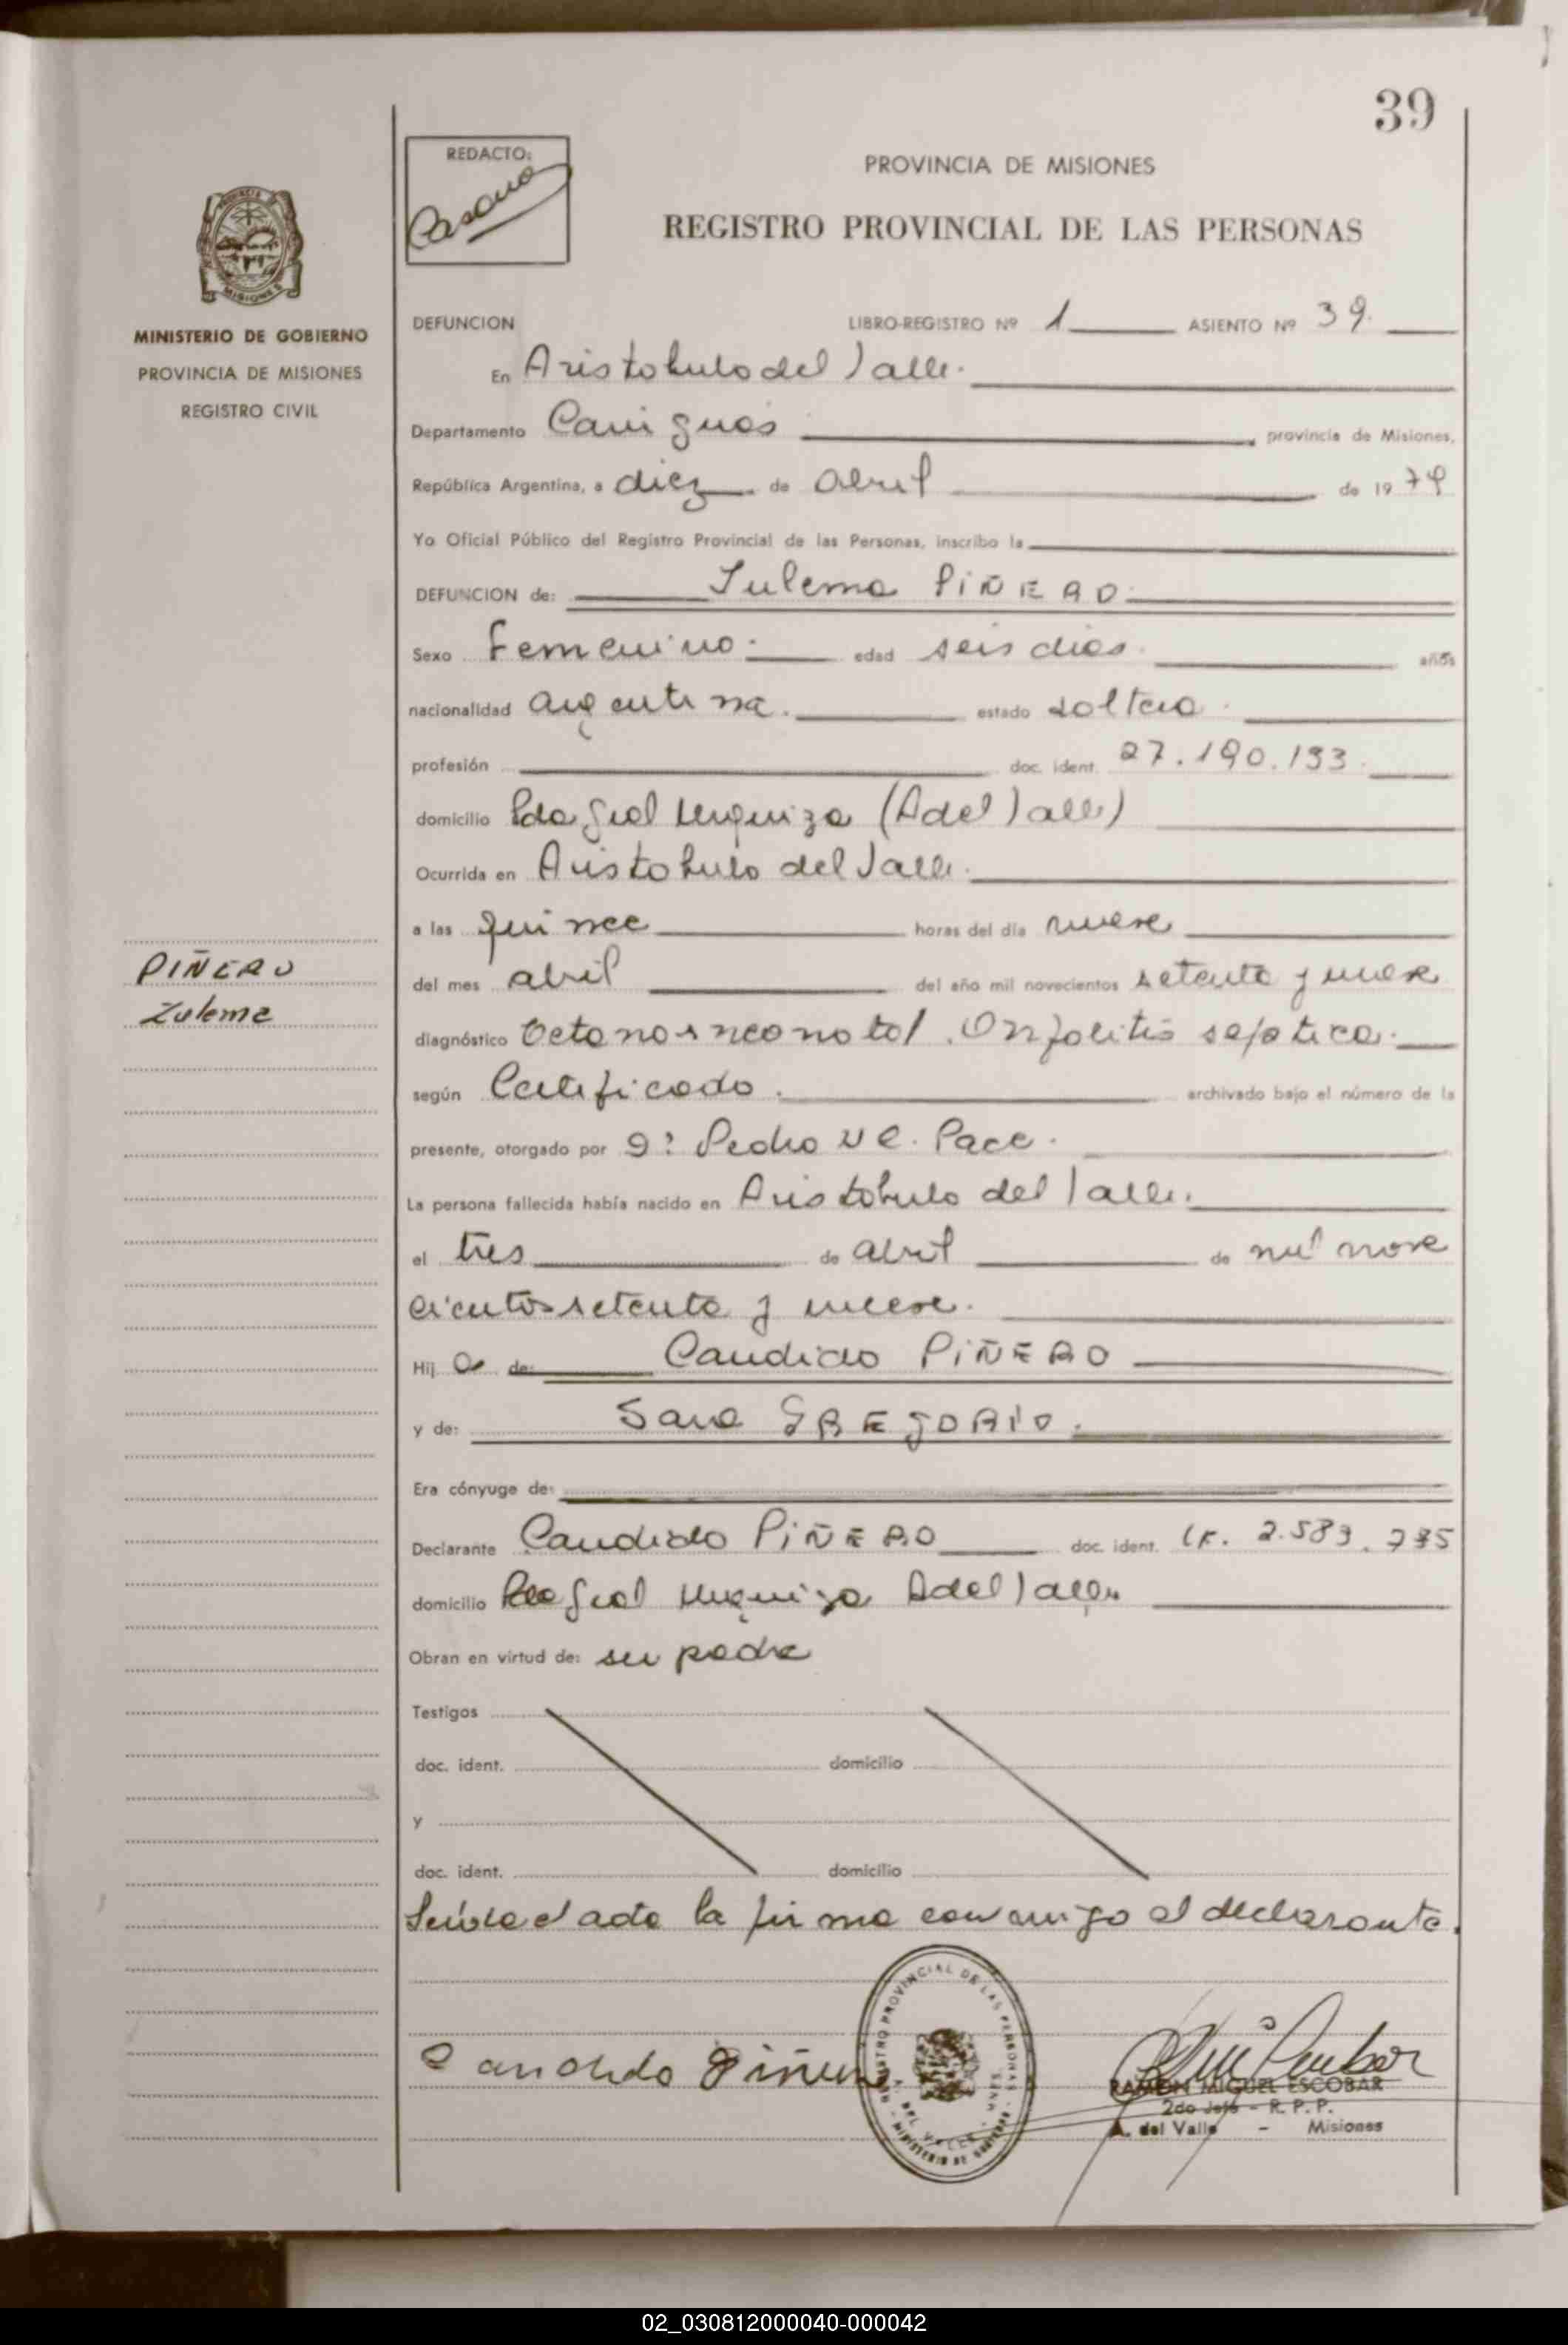 39
REDACTO:
PROVINCIA DE MISIONES
REGISTRO PROVINCIAL DE LAS PERSONAS
MINISTERIO DE GOBIERNO
PROVINCIA DE MISIONES
REGISTRO CIVIL
DEFUNCION LIBRO-REGISTRO Nº 1 ASIENTO Nº 39.
En Aristobulo del Valle.
Departamento Cainguás provincia de Misiones,
República Argentina, a diez de abril de 1979
Yo Oficial Público del Registro Provincial de las Personas, inscribo la
DEFUNCION de: Zulema PIÑERO
Sexo Femenino. edad seis dias. años
nacionalidad argentina. estado soltera.
profesión doc. ident. 27.190.193.
domicilio Pdo Gral Urquiza (A del Valle)
Ocurrida en Aristobulo del Valle.
a las quince horas del día nueve
del mes abril del año mil novecientos setenta y nueve
diagnóstico neonatal. Onfolitis septica.
según Certificado. archivado bajo el número de la
presente, otorgado por Pedro Pace.
La persona fallecida había nacido en Aristobulo del Valle.
el tres de abril de mil nove
cientos setenta y nueve.
Hij a de: Candido PIÑERO
y de: Sara GREGORIO.
Era cónyuge de:
Declarante Candido PIÑERO doc. ident. 2.583.
domicilio Gral Urquiza A del Valle
Obran en virtud de: su padre
Testigos
doc. ident. domicilio
y
doc. ident. domicilio
Leída el acta la firma conmigo el declarante.
PIÑERO
Zulema
Candido Piñero
REGISTRO PROVINCIAL DE LAS PERSONAS
A. DEL VALLE - MNES.
MINISTERIO DE GOBIERNO
RAMON MIGUEL ESCOBAR
2do Jefe - R. P. P.
A. del Valle - Misiones
02_030812000040-000042